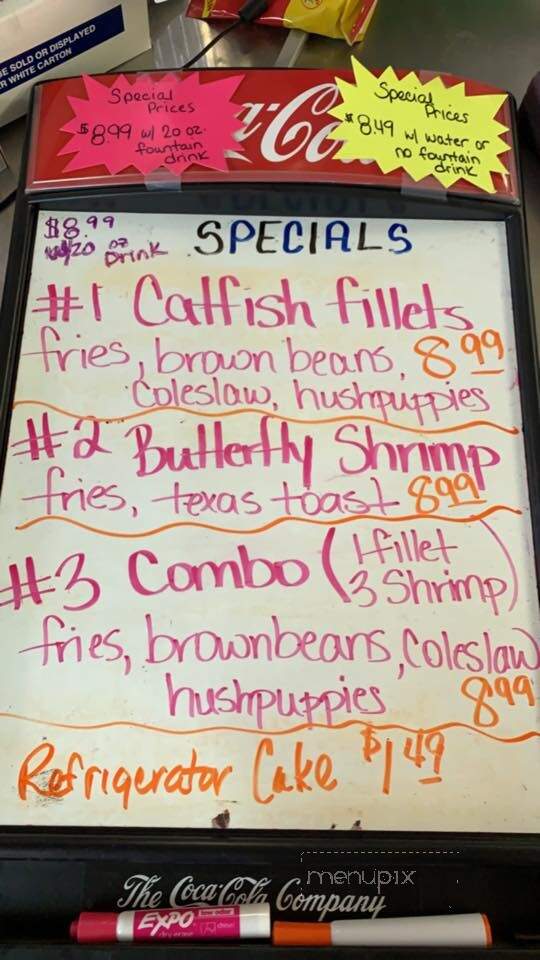 BE SOLD OR DISPLAYED
R WHITE CARTON
Special
Prices
$8.99 w/ 20 oz.
fountain
drink
a-Co
Special
Prices
$8.49 w/ water or
no fountain
drink
$8.99
w/20 oz
Drink
SPECIALS
#1 Catfish fillets
fries, brown beans, 8.99
Coleslaw, hushpuppies
#2 Butterfly Shrimp
fries, texas toast 8.99
#3 Combo (1 fillet
3 Shrimp)
fries, brownbeans, Coleslaw
hushpuppies 8.99
Refrigerator Cake $1.49
menupix
The Coca-Cola Company
EXPO
low odor
dry erase